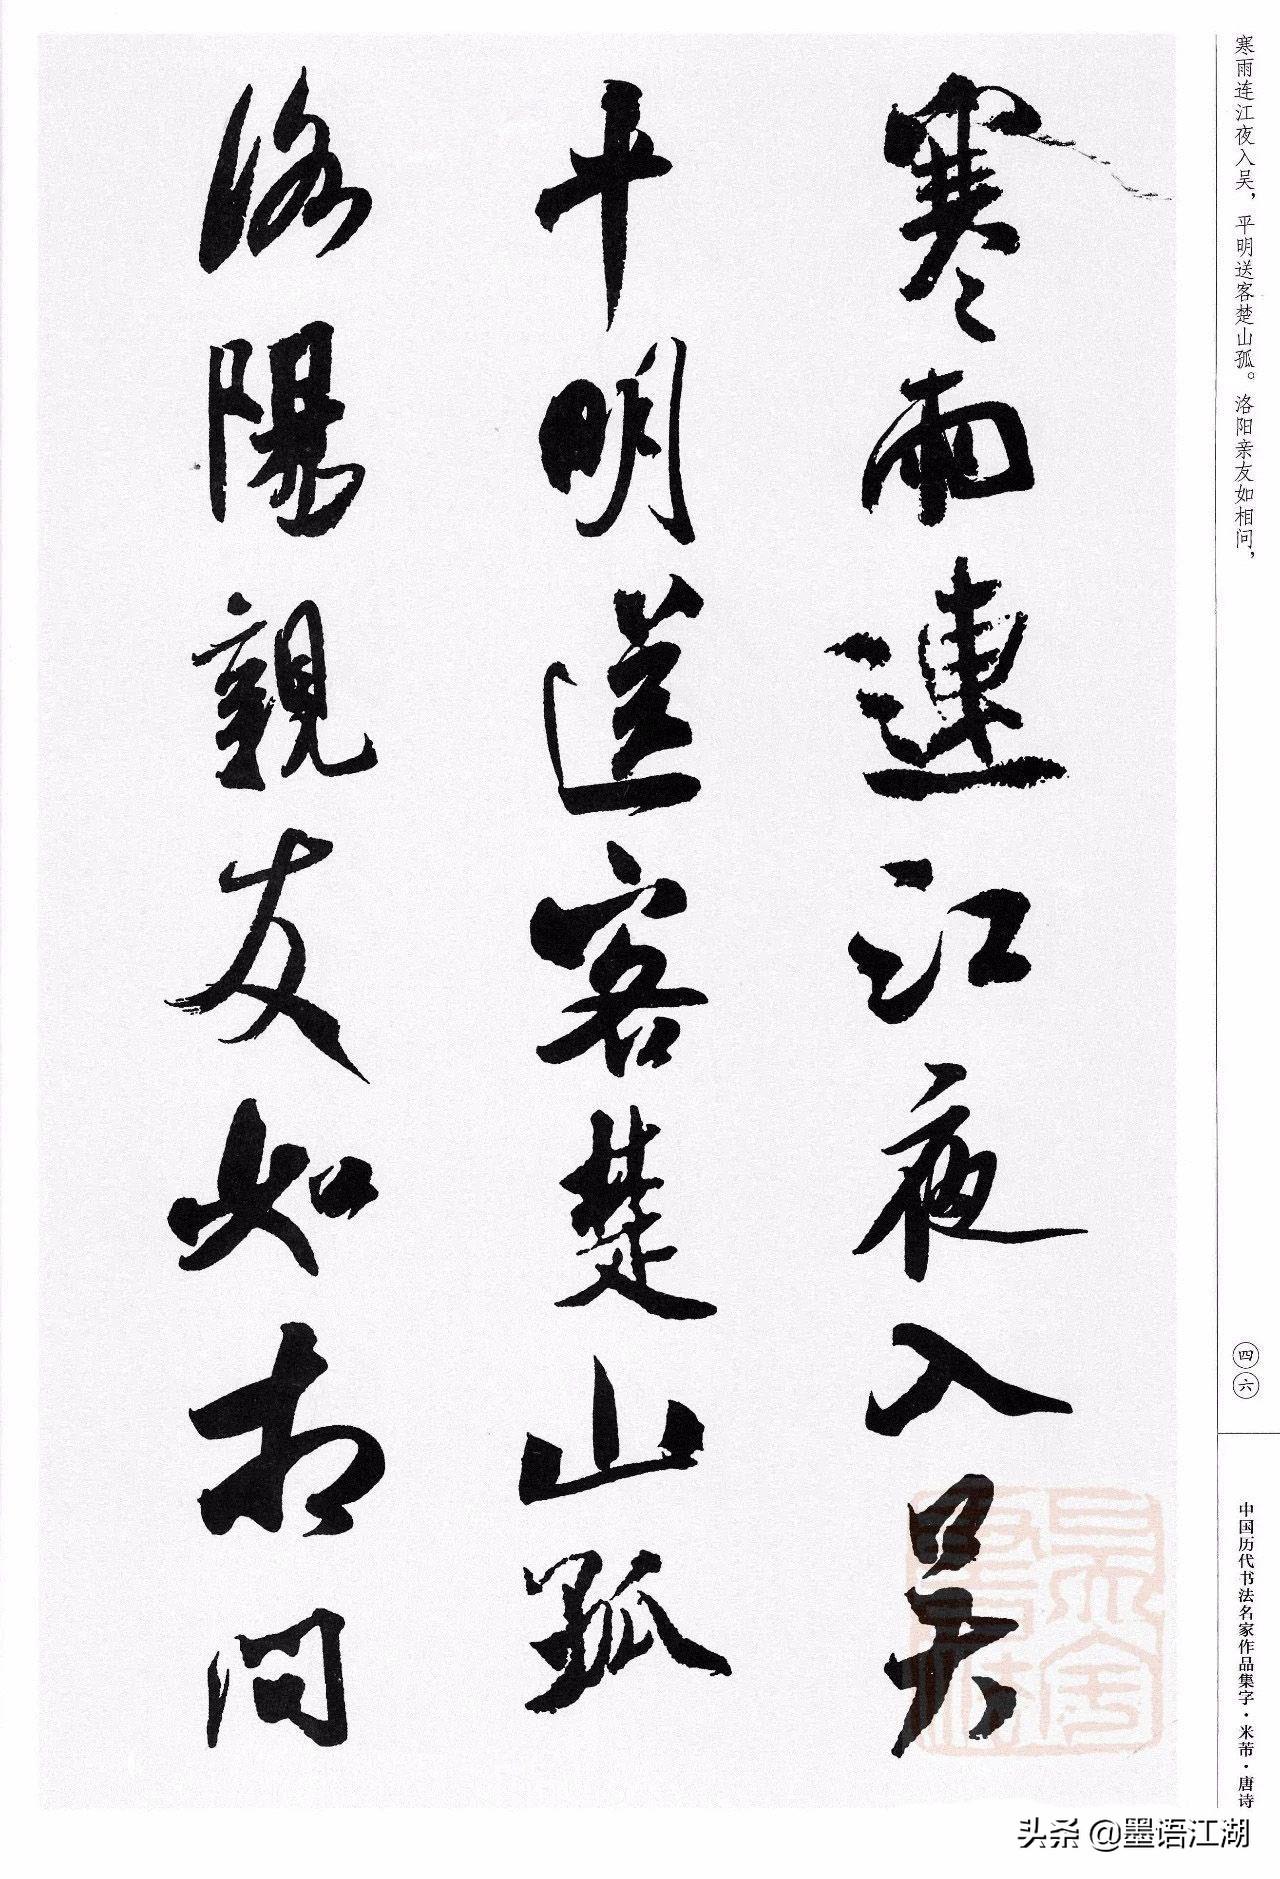 寒雨连江夜入吴，平明送客楚山孤。洛阳亲友如相问，
四六
中国历代书法名家作品集字·米芾·唐诗
寒雨連江夜入吴
平明送客楚山孤
洛陽親友如相问
头条 @墨语江湖